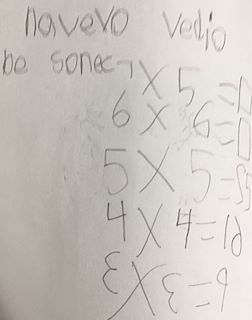 navevo vedio
be sonec
X 5 =
6 X 6 =
5 X 5 =
4 X 4 = 16
3 X 3 = 9